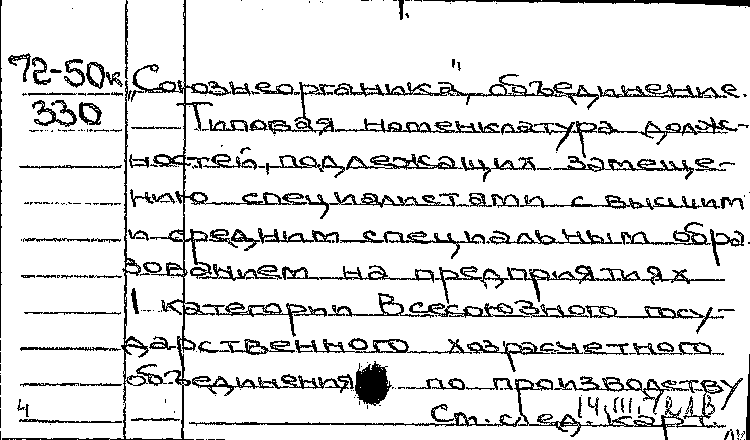 72-50к „Союзнеорганика", объединение.
330 Типовая номенклатура долж-
ностей, подлежащих замеще-
нию специалистами с высшим
и средним специальным обра
зованием на предприятиях
I категории Всесоюзного госу-
дарственного хозрасчетного
объединения по производству
4 См. след. карт.